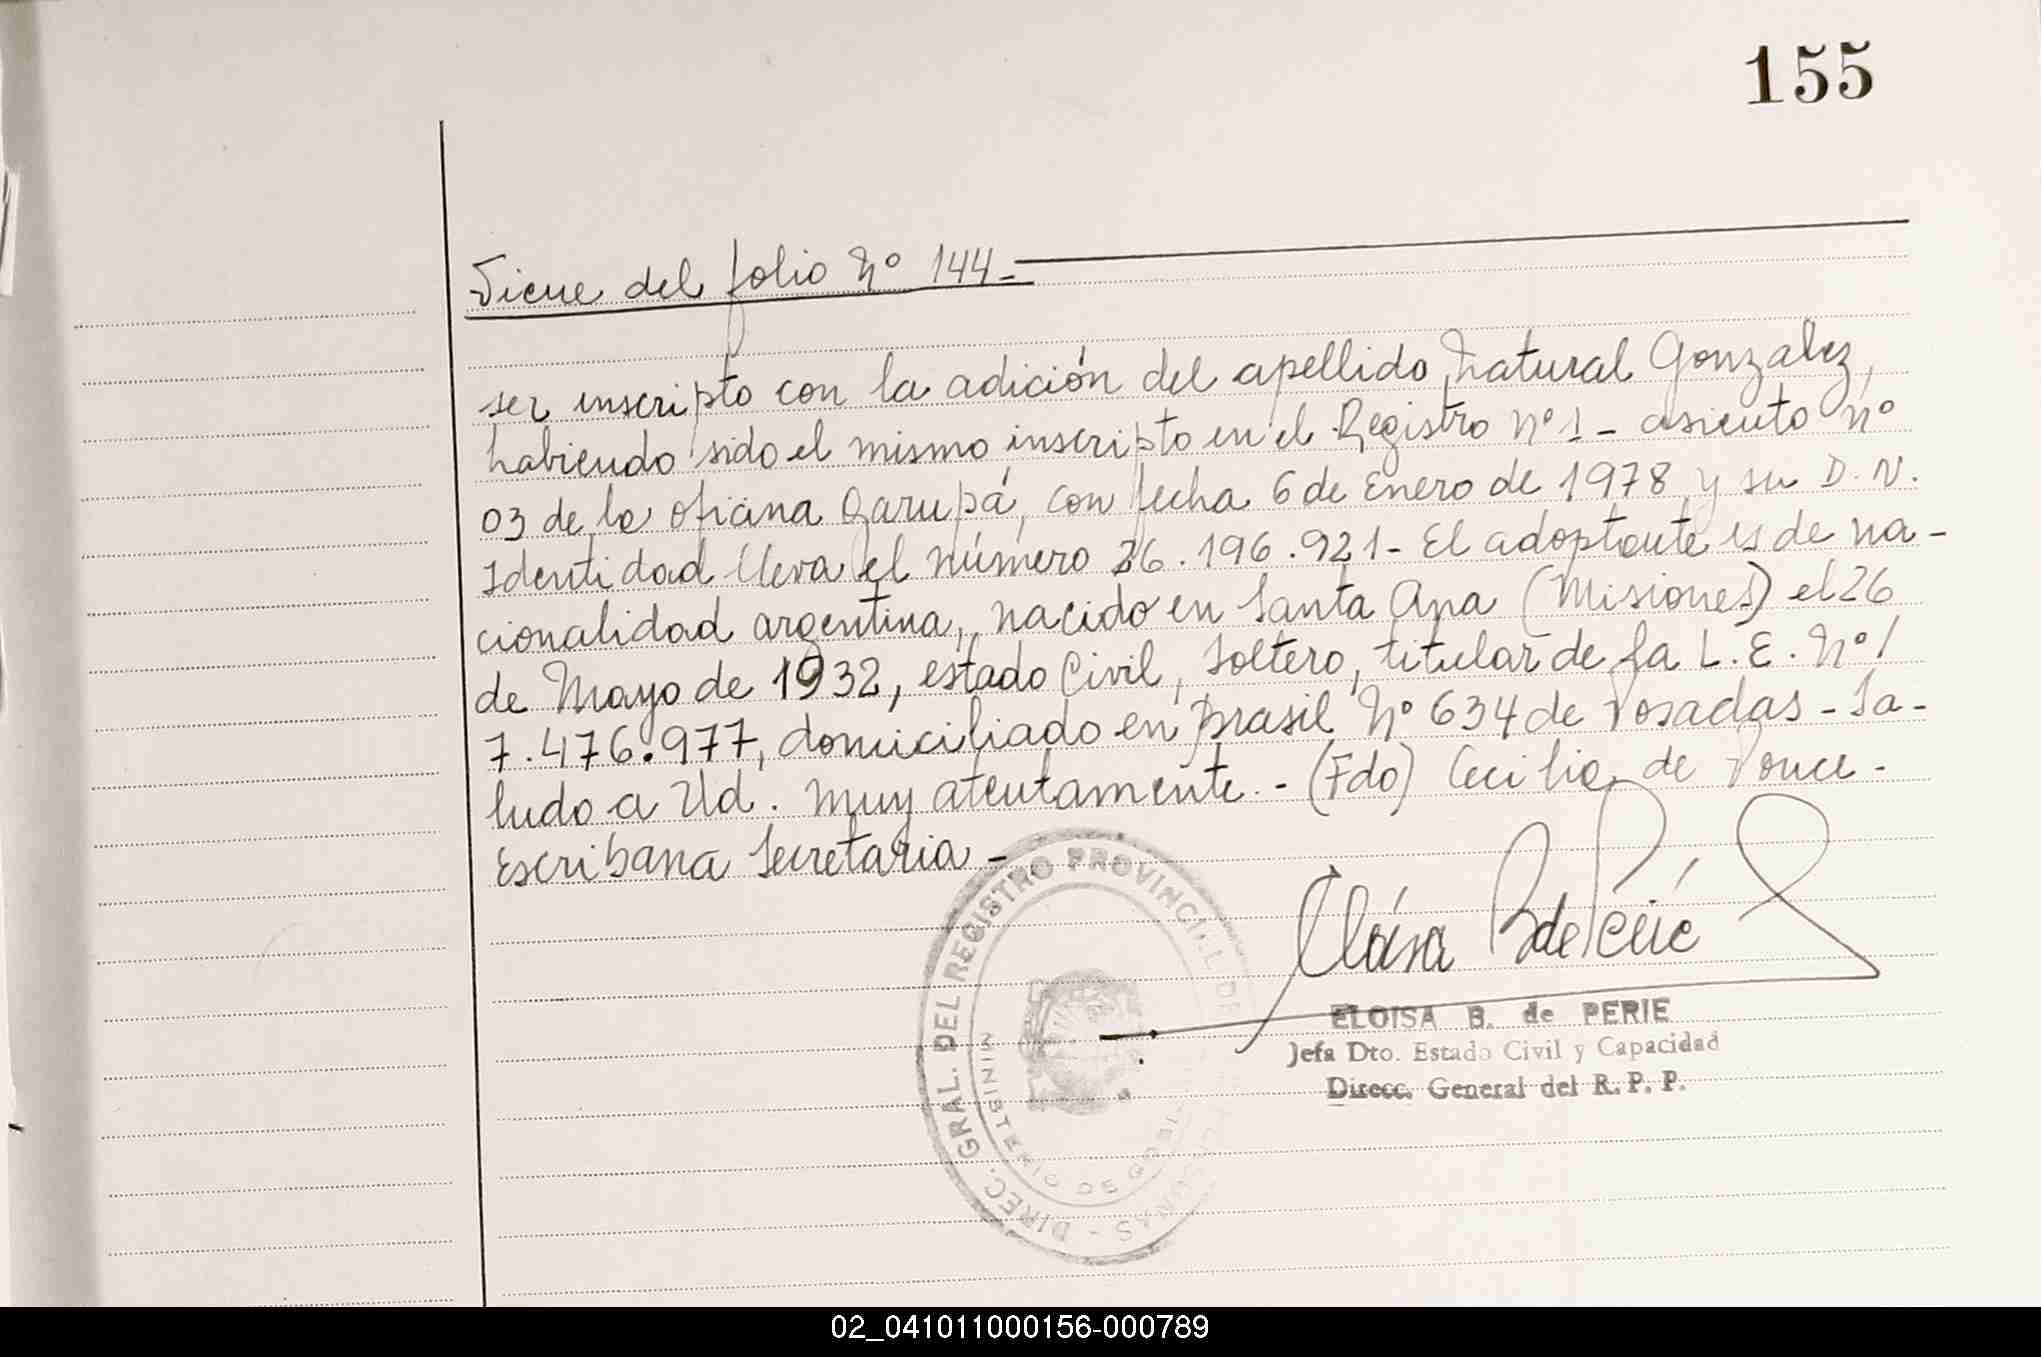 155
Viene del folio Nº 144-
ser inscripto con la adición del apellido natural Gonzalez,
habiendo sido el mismo inscripto en el Registro nº 1 - asiento nº
03 de la oficina Garupá, con fecha 6 de Enero de 1978 y su D.N.
Identidad lleva el número 26.196.921- El adoptante es de na-
cionalidad argentina, nacido en Santa Ana (Misiones) el 26
de Mayo de 1932, estado Civil, Soltero, titular de la L.E. Nº/
7.476.977, domiciliado en Brasil Nº 634 de Posadas - Sa-
ludo a Ud. muy atentamente.- (Fdo) Cecilia de Ponce-
Escribana Secretaria-
DIREC. GRAL. DEL REGISTRO PROVINCIAL DE
MINISTERIO DE GOBI
Eloisa B de Perié
ELOISA B. de PERIE
Jefa Dto. Estado Civil y Capacidad
Direcc. General del R. P. P.
02_041011000156-000789